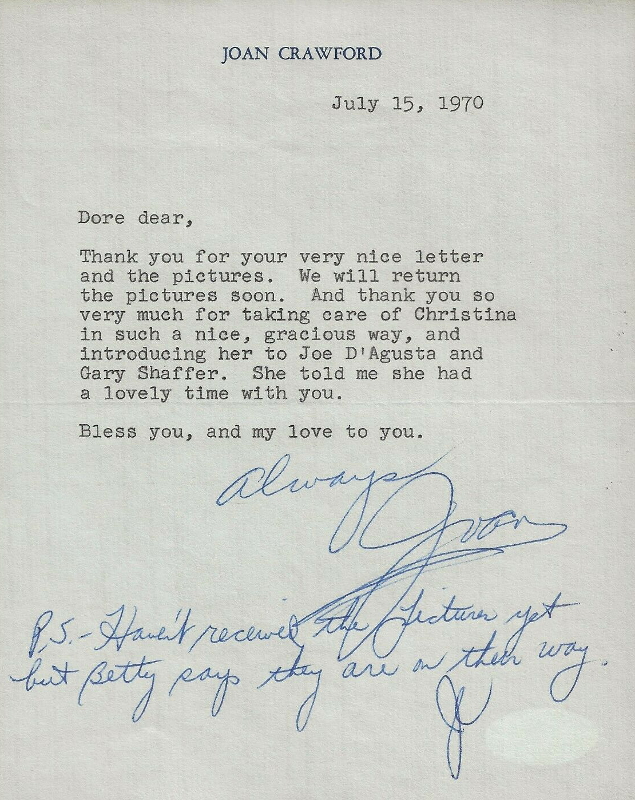 JOAN CRAWFORD
July 15, 1970
Dore dear,
Thank you for your very nice letter
and the pictures. We will return
the pictures soon. And thank you so
very much for taking care of Christina
in such a nice, gracious way, and
introducing her to Joe D'Agusta and
Gary Shaffer. She told me she had
a lovely time with you.
Bless you, and my love to you.
Always
Joan
P.S. - Haven't received the pictures yet
but Betty says they are on their way.
JC